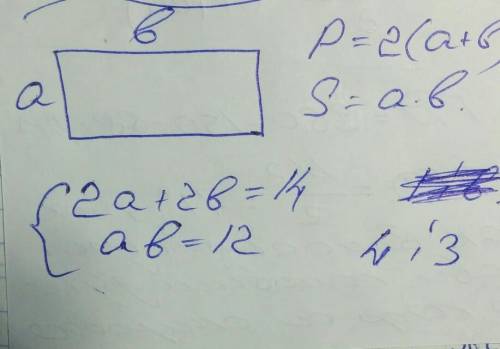 в
a
P = 2(a+в)
S = a·в.
2a+2в=14
aв=12
4 і 3